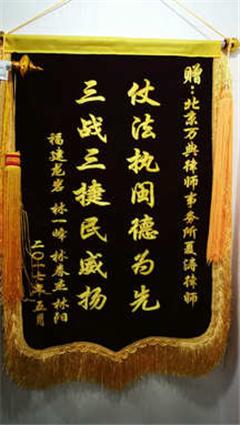 赠:北京万典律师事务所夏涛律师
仗法执闽德为先
三战三捷民威扬
福建龙岩 林一峰 林春生 林阳
二〇一七年五月